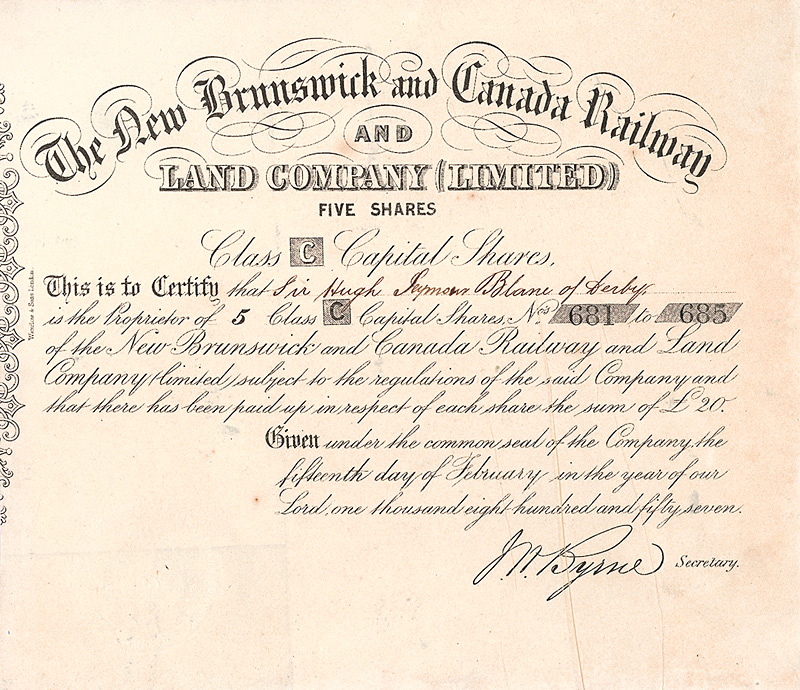 The New Brunswick and Canada Railway
AND
LAND COMPANY (LIMITED)
FIVE SHARES
Class C Capital Shares,
This is to Certify that Sir Hugh Seymour Blane of Derby.
is the Proprietor of 5 Class C Capital Shares, Nos 681 to 685
of the New Brunswick and Canada Railway and Land
Company (limited) subject to the regulations of the said Company and
that there has been paid up in respect of each share the sum of £20.
Given under the common seal of the Company, the
fifteenth day of February in the year of our
Lord, one thousand eight hundred and fifty seven.
J. W. Byrne Secretary.
& Sons London